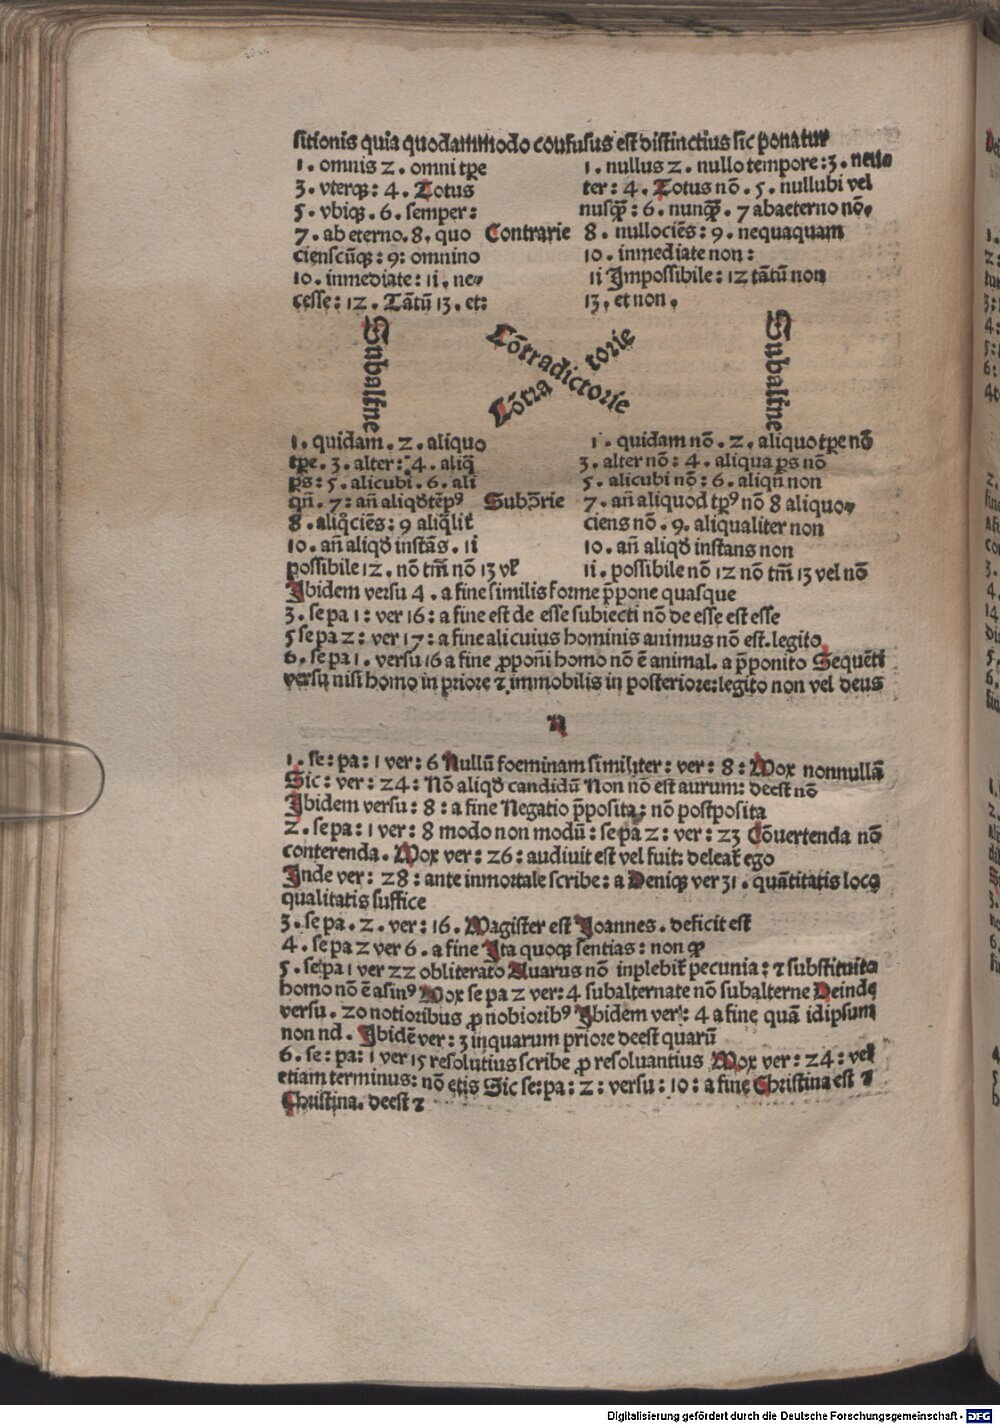 sitionis quia quodammodo confusus est distinctius sic ponatur
1. omnis 2. omni tꝑe
3. vterqꝫ: 4. Totus
5. vbiqꝫ. 6. semper:
7. ab eterno. 8. quo
cienscūqꝫ: 9: omnino
10. inmediate: 11. ne⸗
cesse: 12. Tātū 13. et:
Contrarie
1. nullus 2. nullo tempore: 3. neu
ter: 4. Totus nō. 5. nullubi vel
nusqꝫ̄: 6. nunqꝫ̄. 7 abaeterno nō.
8. nullociēs: 9. nequaquam
10. inmediate non:
11 Impossibile: 12 tātū non
13. et non.
Subalterne
Cōtradictorie
Cōtra torie
Subalterne
1. quidam. 2. aliquo
tꝑe. 3. alter: 4. aliq̄
ꝑs: 5. alicubi. 6. ali
qn̄. 7: añ aliqđ tēpꝰ
8. aliqͦciēs: 9 aliq̄lit̄
10. añ aliqđ instās. 11
possibile 12. nō tm̄ nō 13 vł
Subↄ̄rie
1. quidam nō. 2. aliquo tꝑe nō
3. alter nō: 4. aliqua ꝑs nō
5. alicubi nō: 6. aliqn̄ non
7. añ aliquod tpꝰ nō 8 aliquo⸗
ciens nō. 9. aliqualiter non
10. añ aliqđ instans non
11. possibile nō 12 nō tm̄ 13 vel nō
Ibidem versu 4. a fine similis forme p̄pone quasque
3. se pa 1: ver 16: a fine est de esse subiecti nō de esse est esse
5 se pa 2: ver 17: a fine alicuius hominis animus nō est. legito
6. se pa 1. versu 16 a fine ꝓpōni homo nō ē animal. a p̄ponito Sequēti
versu nisi homo in priore ⁊ immobilis in posteriore: legito non vel deus
n
1. se: pa: 1 ver: 6 Nullū foeminam similiter: ver: 8: Mox nonnullā
Sic: ver: 24: Nō aliqđ candidū Non nō est aurum: deest nō
Ibidem versu: 8: a fine Negatio p̄posita: nō postposita
2. se pa: 1 ver: 8 modo non modū: se pa 2: ver: 23 Cōuertenda nō
conterenda. Mox ver: 26: audiuit est vel fuit: deleat̄ ego
Inde ver: 28: ante inmortale scribe: a Deniqꝫ ver 31. quātitatis loco
qualitatis suffice
3. se pa. 2. ver: 16. Magister est Joannes. deficit est
4. se pa 2 ver 6. a fine Ita quoqꝫ sentias: non ꝙ
5. se pa 1 ver 22 obliterato Auarus nō inplebit̄ pecunia: ⁊ substituito
homo nō ē asinꝰ Mox se pa 2 ver: 4 subalternate nō subalterne Deinde
versu. 20 notioribus ꝓ nobioribꝰ Ibidem ver: 4 a fine quā idipsum
non nd. Ibidē ver: 3 inquarum priore deest quarū
6. se: pa: 1 ver 15 resolutius scribe ꝓ resoluantius Mox ver: 24: vel
etiam terminus: nō etis Sic se: pa: 2: versu: 10: a fine Christina est ⁊
Christina. deest ⁊
Digitalisierung gefördert durch die Deutsche Forschungsgemeinschaft - DFG